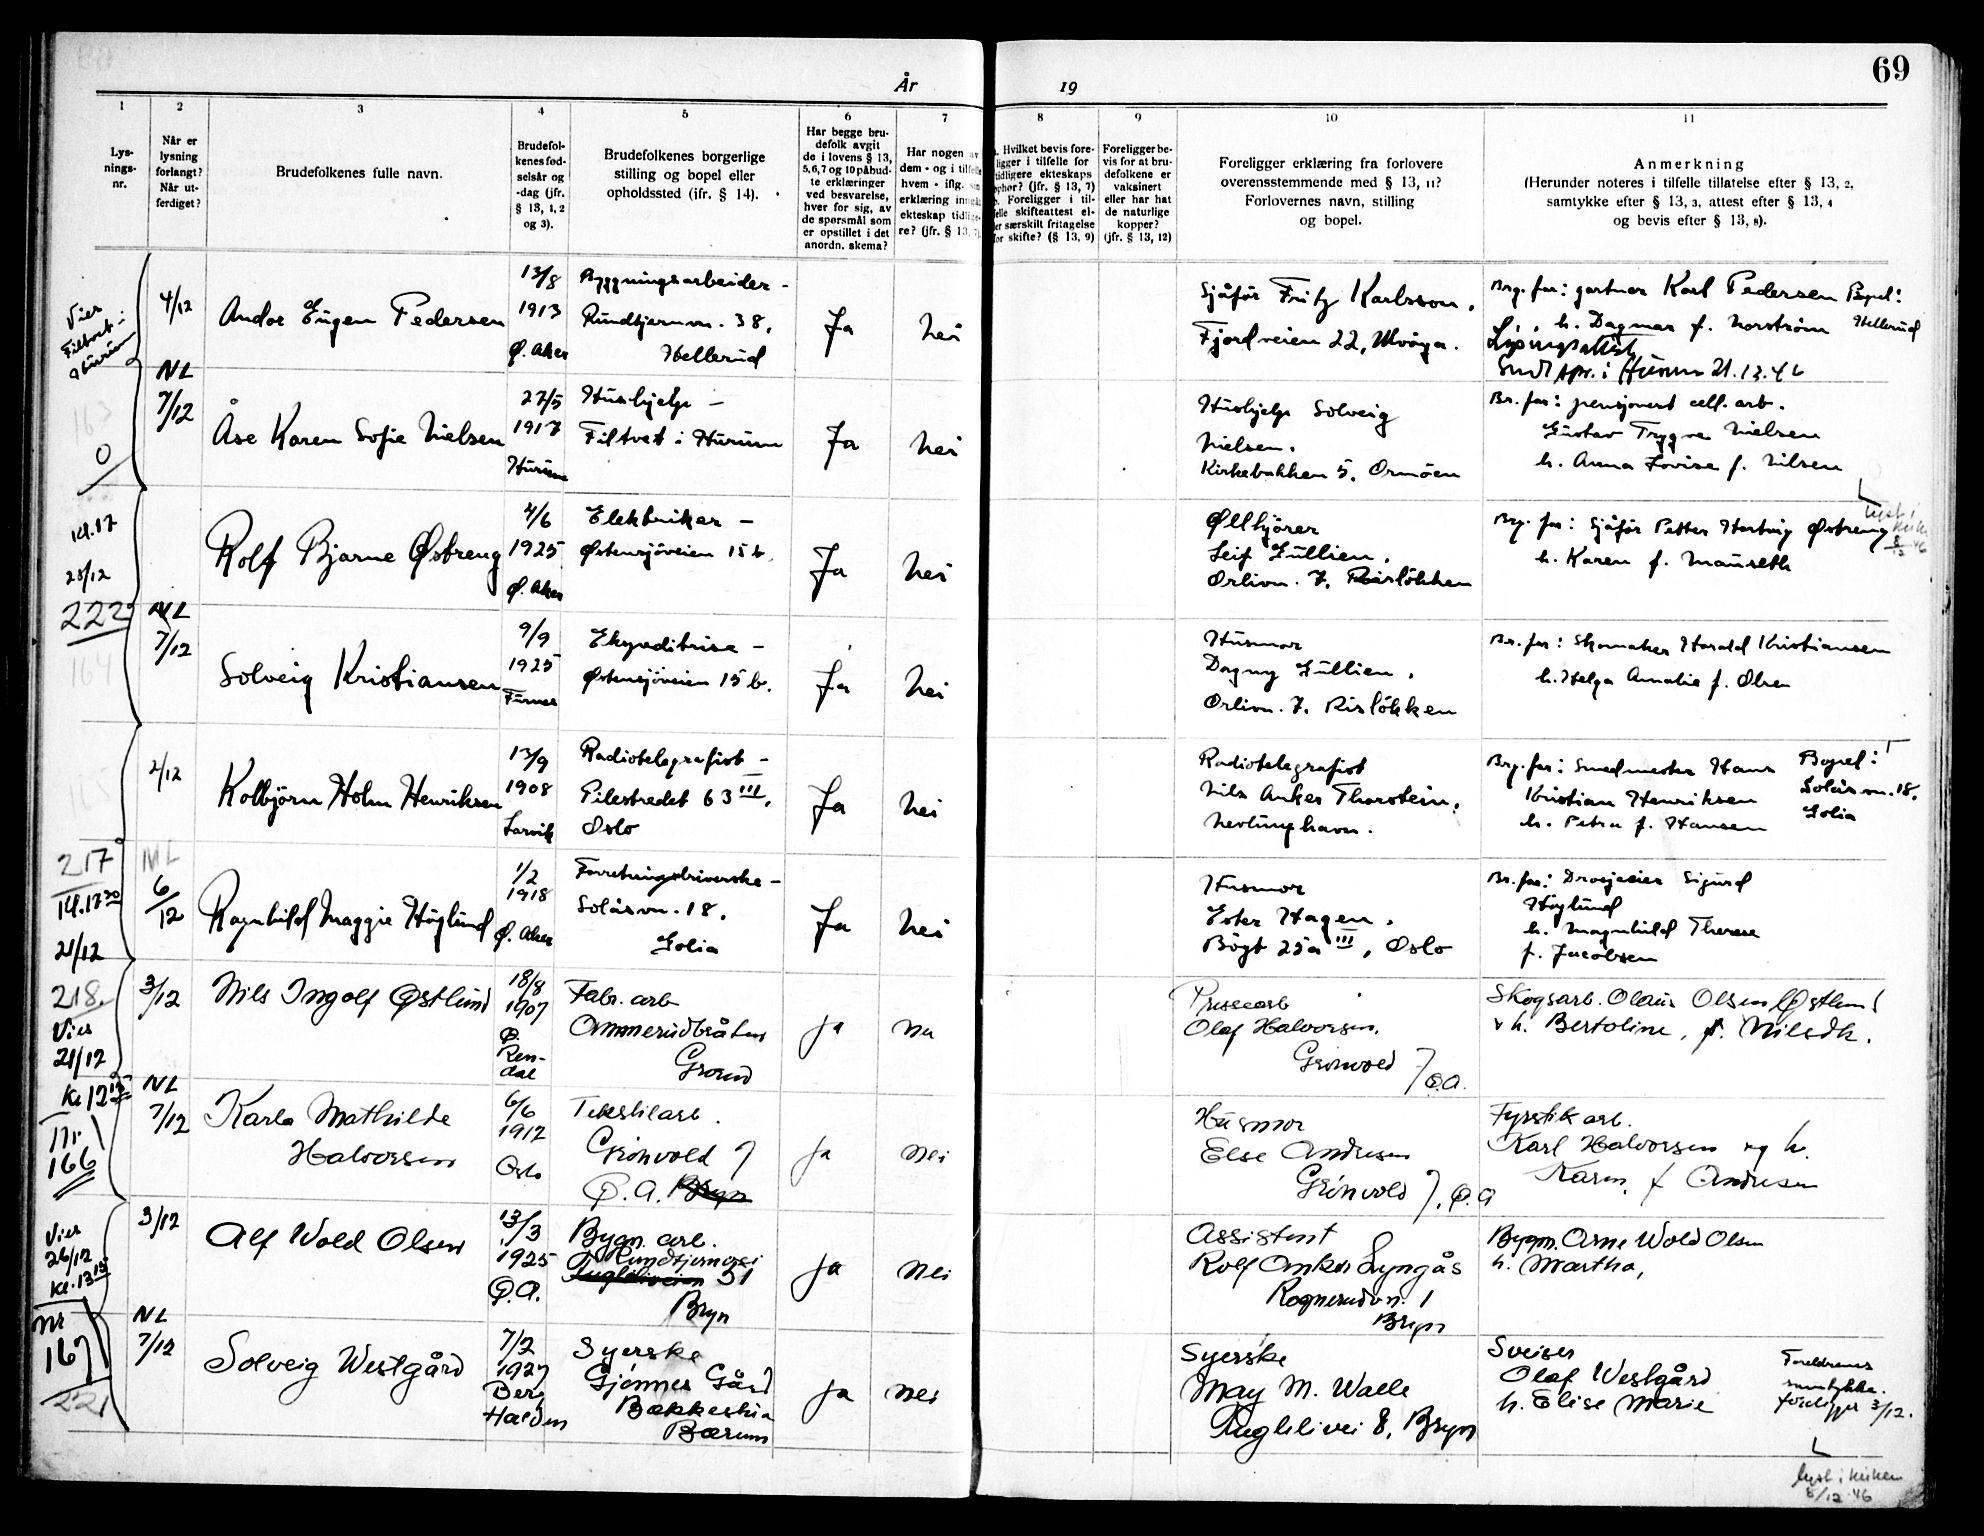 69
År 19
1
Lys-
nings-
nr.
2
Når er
lysning
forlangt?
Når ut-
ferdiget?
3
Brudefolkenes fulle navn.
4
Brudefol-
kenes fød-
selsår og
-dag (jfr.
§ 13, 1, 2
og 3).
5
Brudefolkenes borgerlige
stilling og bopel eller
opholdssted (ifr. § 14).
6
Har begge bru-
defolk avgit
de i lovens § 13,
5,6,7 og 10 påbud-
te erklæringer
ved besvarelse,
hver for sig, av
de spørsmål som
er opstillet i det
anordn. skema?
7
Har nogen av
dem - og i tilfelle
hvem - iflg. sin
erklæring inngått
ekteskap tidlige-
re? (jfr. § 13, 7)
8
Hvilket bevis fore-
ligger i tilfelle for
tidligere ekteskaps
ophør? (jfr. § 13, 7)
b. Foreligger i til-
felle skifteattest el-
ler særskilt fritagelse
for skifte? (§ 13, 9)
9
Foreligger be-
vis for at bru-
defolkene er
vaksinert
eller har hat
de naturlige
kopper?
(jfr. § 13, 12)
10
Foreligger erklæring fra forlovere
overensstemmende med § 13, 11?
Forlovernes navn, stilling
og bopel.
11
Anmerkning
(Herunder noteres i tilfelle tillatelse efter § 13, 2,
samtykke efter § 13, 3, attest efter § 13, 4
og bevis efter § 13, 8).
Vies
Filtvet i
Hurum
163
0
4/12
Andor Eugen Pedersen
13/8
1913
Ø. Aker
Bygningsarbeider -
Rundtjernvn. 38,
Hellerud
Ja
Nei
Sjåför Fritz Karlsson,
Fjordveien 22, Ulvöya.
Brg. far: gartner Karl Pedersen Bopel:
h. Dagmar f. Norström Hellerud
Lysingsattest
Sendt spr. i Hurum 21.12.46
NL
7/12
Åse Karen Sofie Nielsen
27/5
1917
Hurum
Hushjelp -
Filtvet i Hurum
Ja
Nei
Hushjelp Solveig
Nielsen.
Kirkebakken 5, Ormöen
Br. far: pensjonert cell. arb.
Gustav Trygve Nielsen
h. Anna Lovise f. Nilsen
kl. 17
28/12
222
164
Rolf Bjarne Østreng
4/6
1925
Ø. Aker
Elektriker -
Østensjöveien 15 b.
Ja
Nei
Ølkjörer
Leif Gullien,
Orlivn. 7, Risløkken
Brg. far: Sjåför Petter Hartvig Østreng
h. Karen f. Mauseth
lyst i
kirk.
8/12 46
NL
7/12
Solveig Kristiansen
9/9
1925
Furnes
Ekspeditrise -
Østensjöveien 15 b.
Ja
Nei
Husmor
Dagny Gullien,
Orlivn. 7, Risløkken
Br. far: Skomaker Harald Kristiansen
h. Helga Amalie f. Olsen
165
217
kl. 17 30
21/12
2/12
Kolbjörn Holm Henriksen
13/9
1908
Larvik
Radiotelegrafist -
Pilestredet 63 III,
Oslo
Ja
Nei
Radiotelegrafist
Nils Anker Thorstein,
Nevlunghavn.
Brg. far: Smedmester Hans
Kristian Henriksen
h. Petra f. Hansen
Bopel:
Solåsvn. 18,
Golia
NL
6/12
Ragnhild Maggie Höglund
1/2
1918
Ø. Aker
Forretningsdriverske -
Solåsvn. 18,
Golia
Ja
Nei
Husmor
Ester Hagen,
Bögt 25a III, Oslo
Br. far: Drosjeeier Sigurd
Höglund
h. Magnhild Therese
f. Jacobsen
218
Vies
21/12
kl 12 15
Nr
166
3/12
Nils Ingolf Østlund
18/8
1907
Ø.
Ren-
dal
Fabr. arb
Ammerudbråten
Grorud
ja
nei
Pressearb
Olaf Halvorsen,
Grönvold 7 Ø.A.
Skogsarb. Olaus Olsen Østlund
h. Bertoline, f. Nilsdt.
NL
7/12
Karla Mathilde
Halvorsen
6/6
1912
Oslo
Tekstilarb.
Grönvold 7
Ø.A. Bryn
ja
nei
Husmor
Else Andresen
Grönvold 7, Ø.A
Fyrstikarb.
Karl Halvorsen og h.
Karen, f Andresen
Vies
26/12
kl. 13 15
Nr
167
221
3/12
Alf Wold Olsen
13/3
1925
Ø.A.
Bygn. arb.
Rundtjernvei
Fugleliveien 51
Bryn
ja
nei
Assistent
Rolf Anker Lyngås
Rognerudvn. 1
Bryn
Byggm. Arne Wold Olsen
h. Martha,
NL
7/12
Solveig Westgård
7/2
1927
Berg
Halden
Syerske
Gjönnes Gård
Bekkestua
Bærum
ja
nei
Syerske
May M. Walle
Fuglelivei 8, Bryn
Sveiser
Olaf Westgård
h. Elise Marie
Foreldrenes
samtykke.
foreligger 3/12.
lyst i kirken
8/12 46